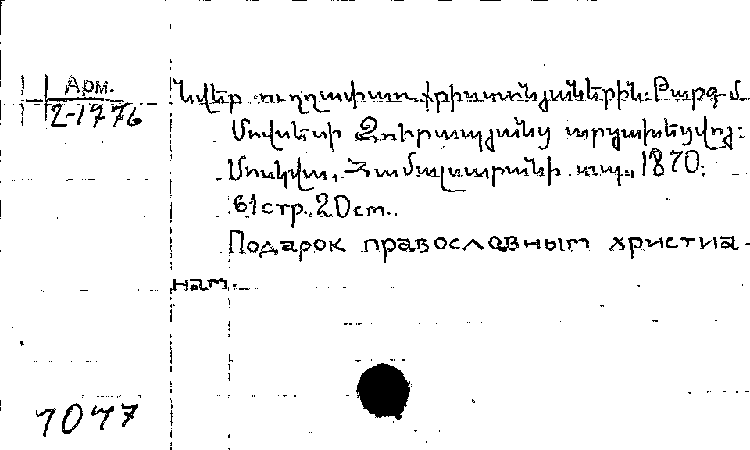 Арм.
2-1776
Նվեր ուղղափառ քրիստոնյաներին. Թարգմ
Մովսեսի Զուիրապյանց արդյախեցվոյ:
Մոսկվա, Համալսարանի տպ., 1870.
61стр. 20ст..
Подарок православным христиа-
нам.
7077